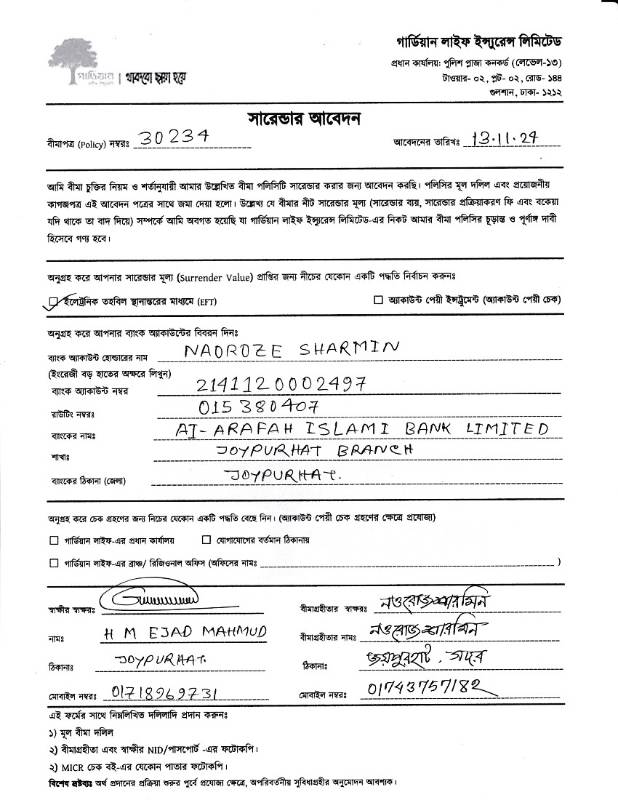 গার্ডিয়ান লাইফ ইন্স্যুরেন্স লিমিটেড
প্রধান কার্যালয়: পুলিশ প্লাজা কনকর্ড (লেভেল-১৩)
টাওয়ার- ০২, প্লট- ০২, রোড- ১৪৪
গুলশান, ঢাকা- ১২১২
গার্ডিয়ান | থাকবো ছায়া হয়ে
সারেন্ডার আবেদন
বীমাপত্র (Policy) নম্বরঃ 30234 আবেদনের তারিখঃ 13.11.24
আমি বীমা চুক্তির নিয়ম ও শর্তানুযায়ী আমার উল্লেখিত বীমা পলিসিটি সারেন্ডার করার জন্য আবেদন করছি। পলিসির মূল দলিল এবং প্রয়োজনীয়
কাগজপত্র এই আবেদন পত্রের সাথে জমা দেয়া হলো। উল্লেখ্য যে বীমার নীট সারেন্ডার মূল্য (সারেন্ডার ব্যয়, সারেন্ডার প্রক্রিয়াকরণ ফি এবং বকেয়া
যদি থাকে তা বাদ দিয়ে) সম্পর্কে আমি অবগত হয়েছি যা গার্ডিয়ান লাইফ ইন্স্যুরেন্স লিমিটেড-এর নিকট আমার বীমা পলিসির চূড়ান্ত ও পূর্ণাঙ্গ দাবী
হিসেবে গণ্য হবে।
অনুগ্রহ করে আপনার সারেন্ডার মূল্য (Surrender Value) প্রাপ্তির জন্য নীচের যেকোন একটি পদ্ধতি নির্বাচন করুনঃ
ইলেক্ট্রনিক তহবিল স্থানান্তরের মাধ্যমে (EFT) অ্যাকাউন্ট পেয়ী ইন্সট্রুমেন্ট (অ্যাকাউন্ট পেয়ী চেক)
অনুগ্রহ করে আপনার ব্যাংক অ্যাকাউন্টের বিবরন দিনঃ
ব্যাংক অ্যাকাউন্ট হোল্ডারের নাম NAOROZE SHARMIN
(ইংরেজী বড় হাতের অক্ষরে লিখুন)
ব্যাংক অ্যাকাউন্ট নম্বর 2141120002497
রাউটিং নম্বরঃ 015380407
ব্যাংকের নামঃ AI-ARAFAH ISLAMI BANK LIMITED
শাখাঃ JOYPURHAT BRANCH
ব্যাংকের ঠিকানা (জেলা) JOYPURHAT.
অনুগ্রহ করে চেক গ্রহণের জন্য নিচের যেকোন একটি পদ্ধতি বেছে নিন। (অ্যাকাউন্ট পেয়ী চেক গ্রহণের ক্ষেত্রে প্রযোজ্য)
গার্ডিয়ান লাইফ-এর প্রধান কার্যালয় যোগাযোগের বর্তমান ঠিকানায়
গার্ডিয়ান লাইফ-এর ব্রাঞ্চ/ রিজিওনাল অফিস (অফিসের নামঃ )
স্বাক্ষীর স্বাক্ষরঃ বীমাগ্রহীতার স্বাক্ষরঃ নওরোজ শারমিন
নামঃ H M EJAD MAHMUD বীমাগ্রহীতার নামঃ নওরোজ শারমিন
ঠিকানাঃ JOYPURHAT. ঠিকানাঃ জয়পুরহাট, সদর
মোবাইল নম্বরঃ 01718969731 মোবাইল নম্বরঃ 01743757182
এই ফর্মের সাথে নিম্নলিখিত দলিলাদি প্রদান করুনঃ
১) মূল বীমা দলিল
২) বীমাগ্রহীতা এবং স্বাক্ষীর NID/পাসপোর্ট -এর ফটোকপি।
২) MICR চেক বই-এর যেকোন পাতার ফটোকপি।
বিশেষ দ্রষ্টব্যঃ অর্থ প্রদানের প্রক্রিয়া শুরুর পূর্বে প্রযোজ্য ক্ষেত্রে, অপরিবর্তনীয় সুবিধাগ্রহীর অনুমোদন আবশ্যক।